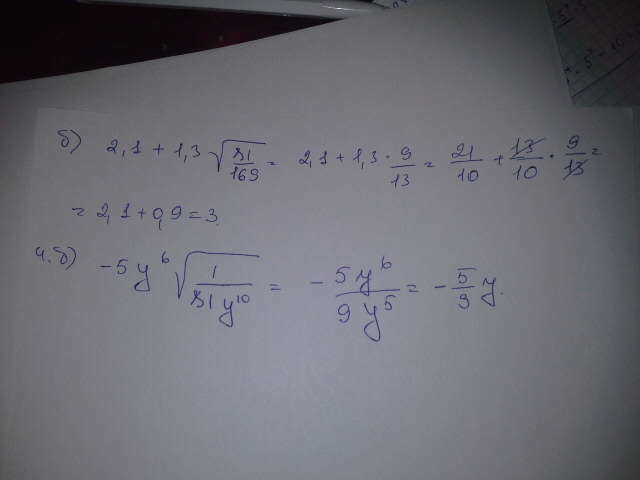 б) 2,1 + 1,3 √(81/169) = 2,1 + 1,3 · 9/13 = 21/10 + 13/10 · 9/13 =
= 2,1 + 0,9 = 3.
4.б) -5y⁶ √(1/(81y¹⁰)) = - 5y⁶/(9y⁵) = - 5/9 y.